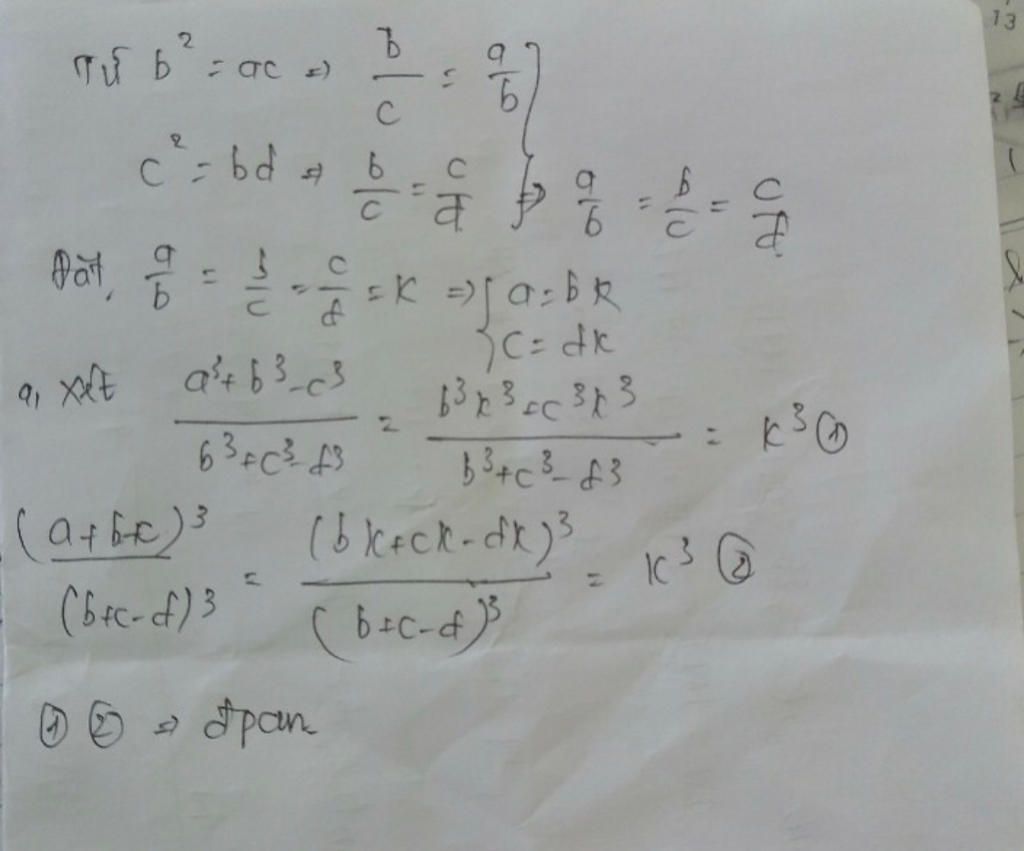 Từ b² = ac => b/c = a/b
c² = bd => b/c = c/d => a/b = b/c = c/d
Đặt, a/b = b/c = c/d = k => { a = bk
c = dk
a, Xét (a³ + b³ - c³)/(b³ + c³ - d³) = (b³k³ + c³k³)/(b³ + c³ - d³) = k³ ①
(a + b - c)³/(b + c - d)³ = (bk + ck - dk)³/(b + c - d)³ = k³ ②
① ② => đpcm